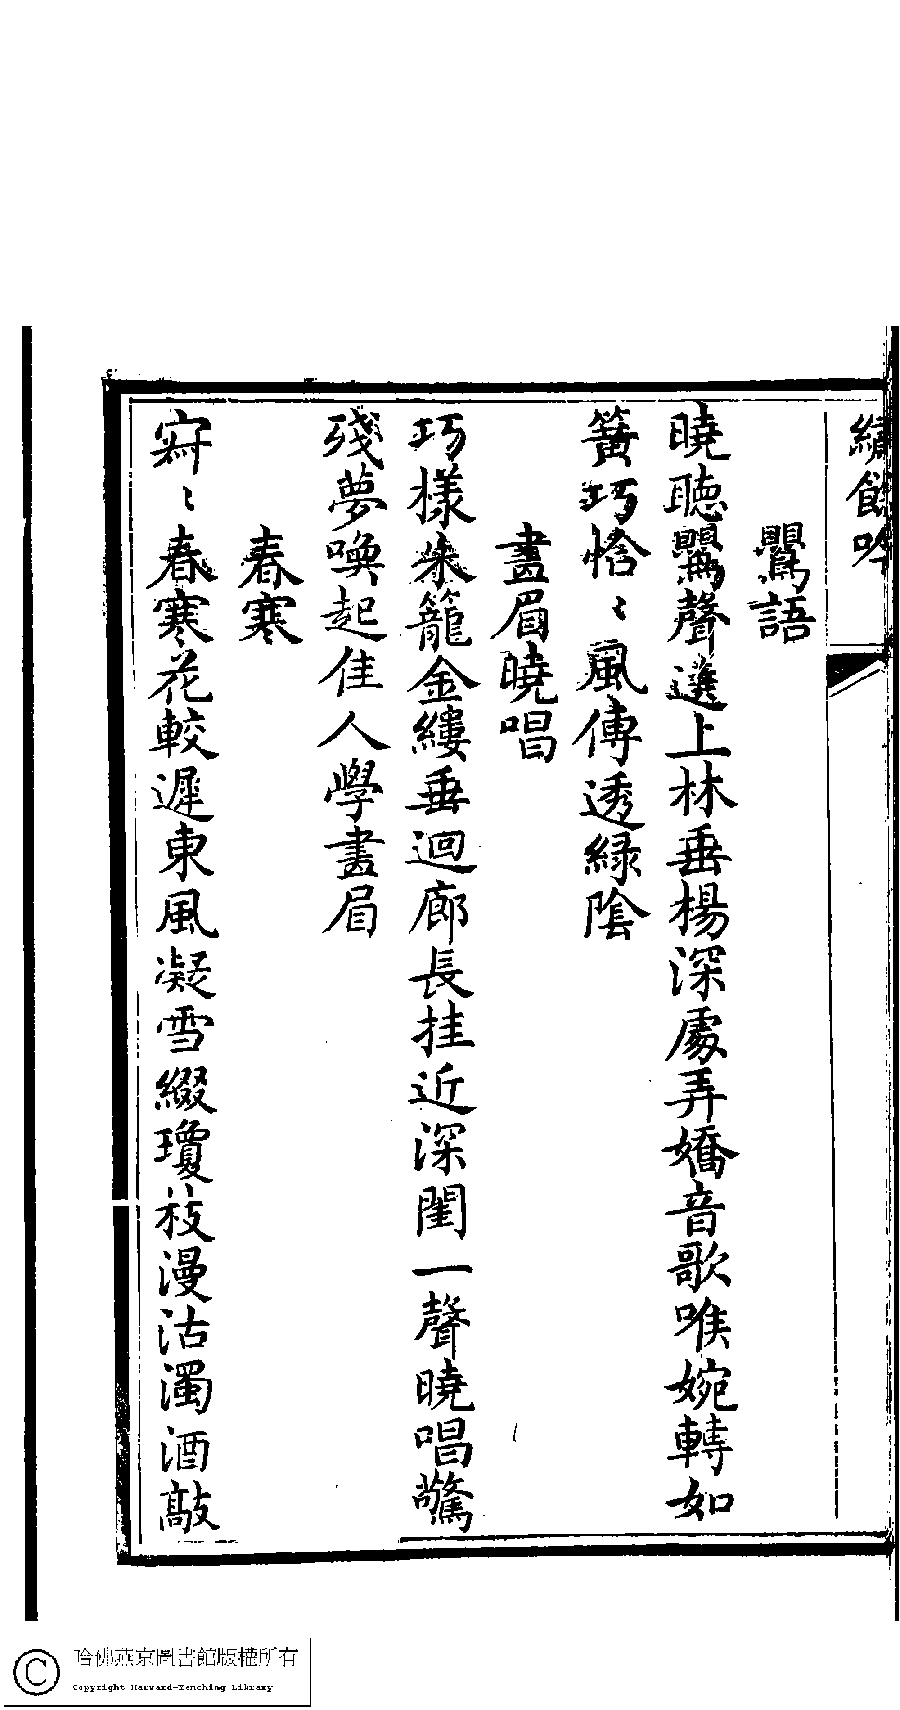 繡餘吟
鸎語
曉聽鸎聲選上林垂楊深處弄嬌音歌喉婉轉如
簧巧恰〻風傳透綠陰
畫眉曉唱
巧樣朱籠金縷垂迴廊長挂近深閨一聲曉唱驚
殘夢喚起佳人學畫眉
春寒
〻春寒花較遲東風凝雪綴瓊枝漫沽濁酒敲
哈佛燕京圖書館版權所有
Copyright Harvard-Yenching Library